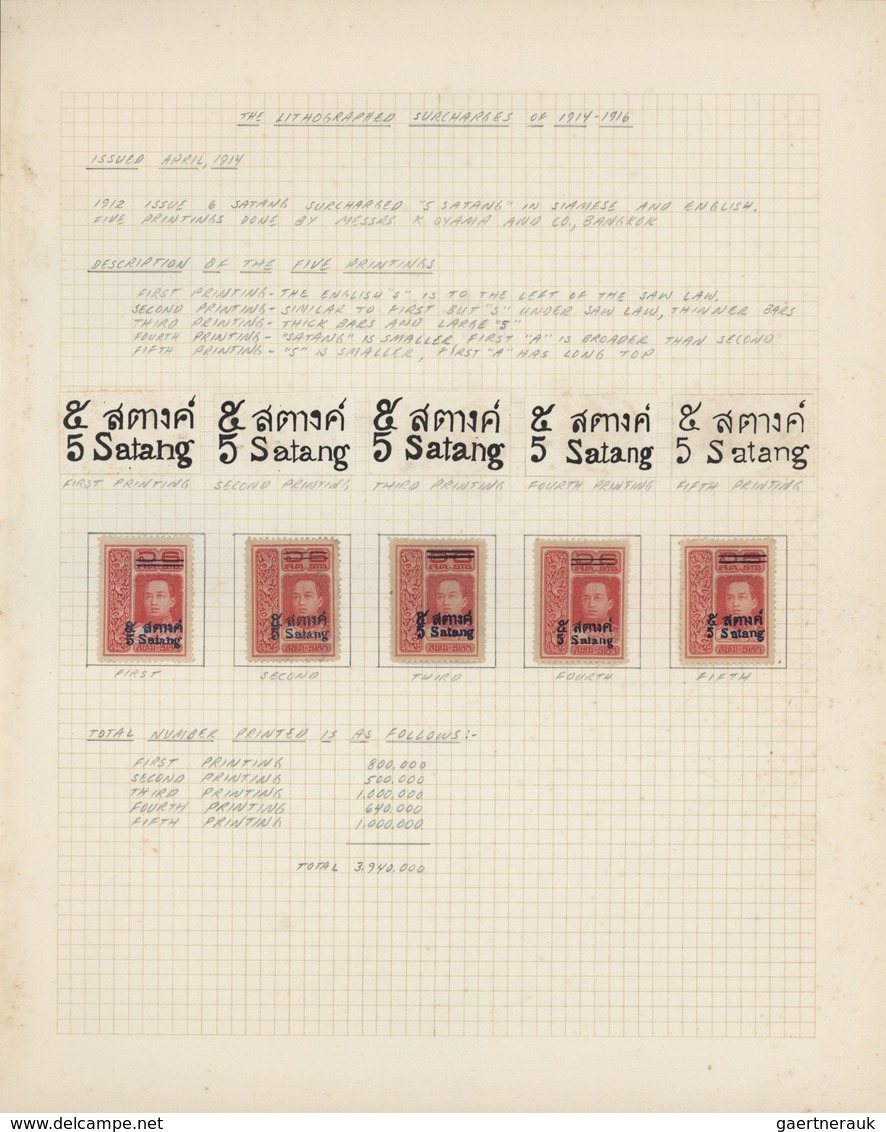 THE LITHOGRAPHED SURCHARGES OF 1914-1916
ISSUED APRIL, 1914
1912 ISSUE 6 SATANG SURCHARGED "5 SATANG" IN SIAMESE AND ENGLISH.
FIVE PRINTINGS DONE BY MESSRS K OYAMA AND CO., BANGKOK
DESCRIPTION OF THE FIVE PRINTINGS
FIRST PRINTING - THE ENGLISH "5" IS TO THE LEFT OF THE SAW LAW.
SECOND PRINTING - SIMILAR TO FIRST BUT "5" UNDER SAW LAW, THINNER BARS
THIRD PRINTING - THICK BARS AND LARGE "5"
FOURTH PRINTING - "SATANG" IS SMALLER, FIRST "A" IS BROADER THAN SECOND
FIFTH PRINTING - "5" IS SMALLER, FIRST "A" HAS LONG TOP
๕ สตางค์ ๕ สตางค์ ๕ สตางค์ ๕ สตางค์ ๕ สตางค์
5 Satang 5 Satang 5 Satang 5 Satang 5 Satang
FIRST PRINTING SECOND PRINTING THIRD PRINTING FOURTH PRINTING FIFTH PRINTING
๕ สตางค์ ๕ สตางค์ ๕ สตางค์ ๕ สตางค์ ๕ สตางค์
5 Satang 5 Satang 5 Satang 5 Satang 5 Satang
FIRST SECOND THIRD FOURTH FIFTH
TOTAL NUMBER PRINTED IS AS FOLLOWS:-
FIRST PRINTING 800,000
SECOND PRINTING 500,000
THIRD PRINTING 1,000,000
FOURTH PRINTING 640,000
FIFTH PRINTING 1,000,000
TOTAL 3,940,000
www.delcampe.net
gaertnerauk